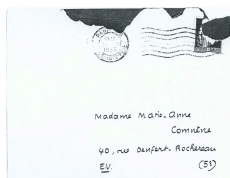 Madame Marie-Anne
Comnène
40, rue Denfert-Rochereau
EV. (5e)